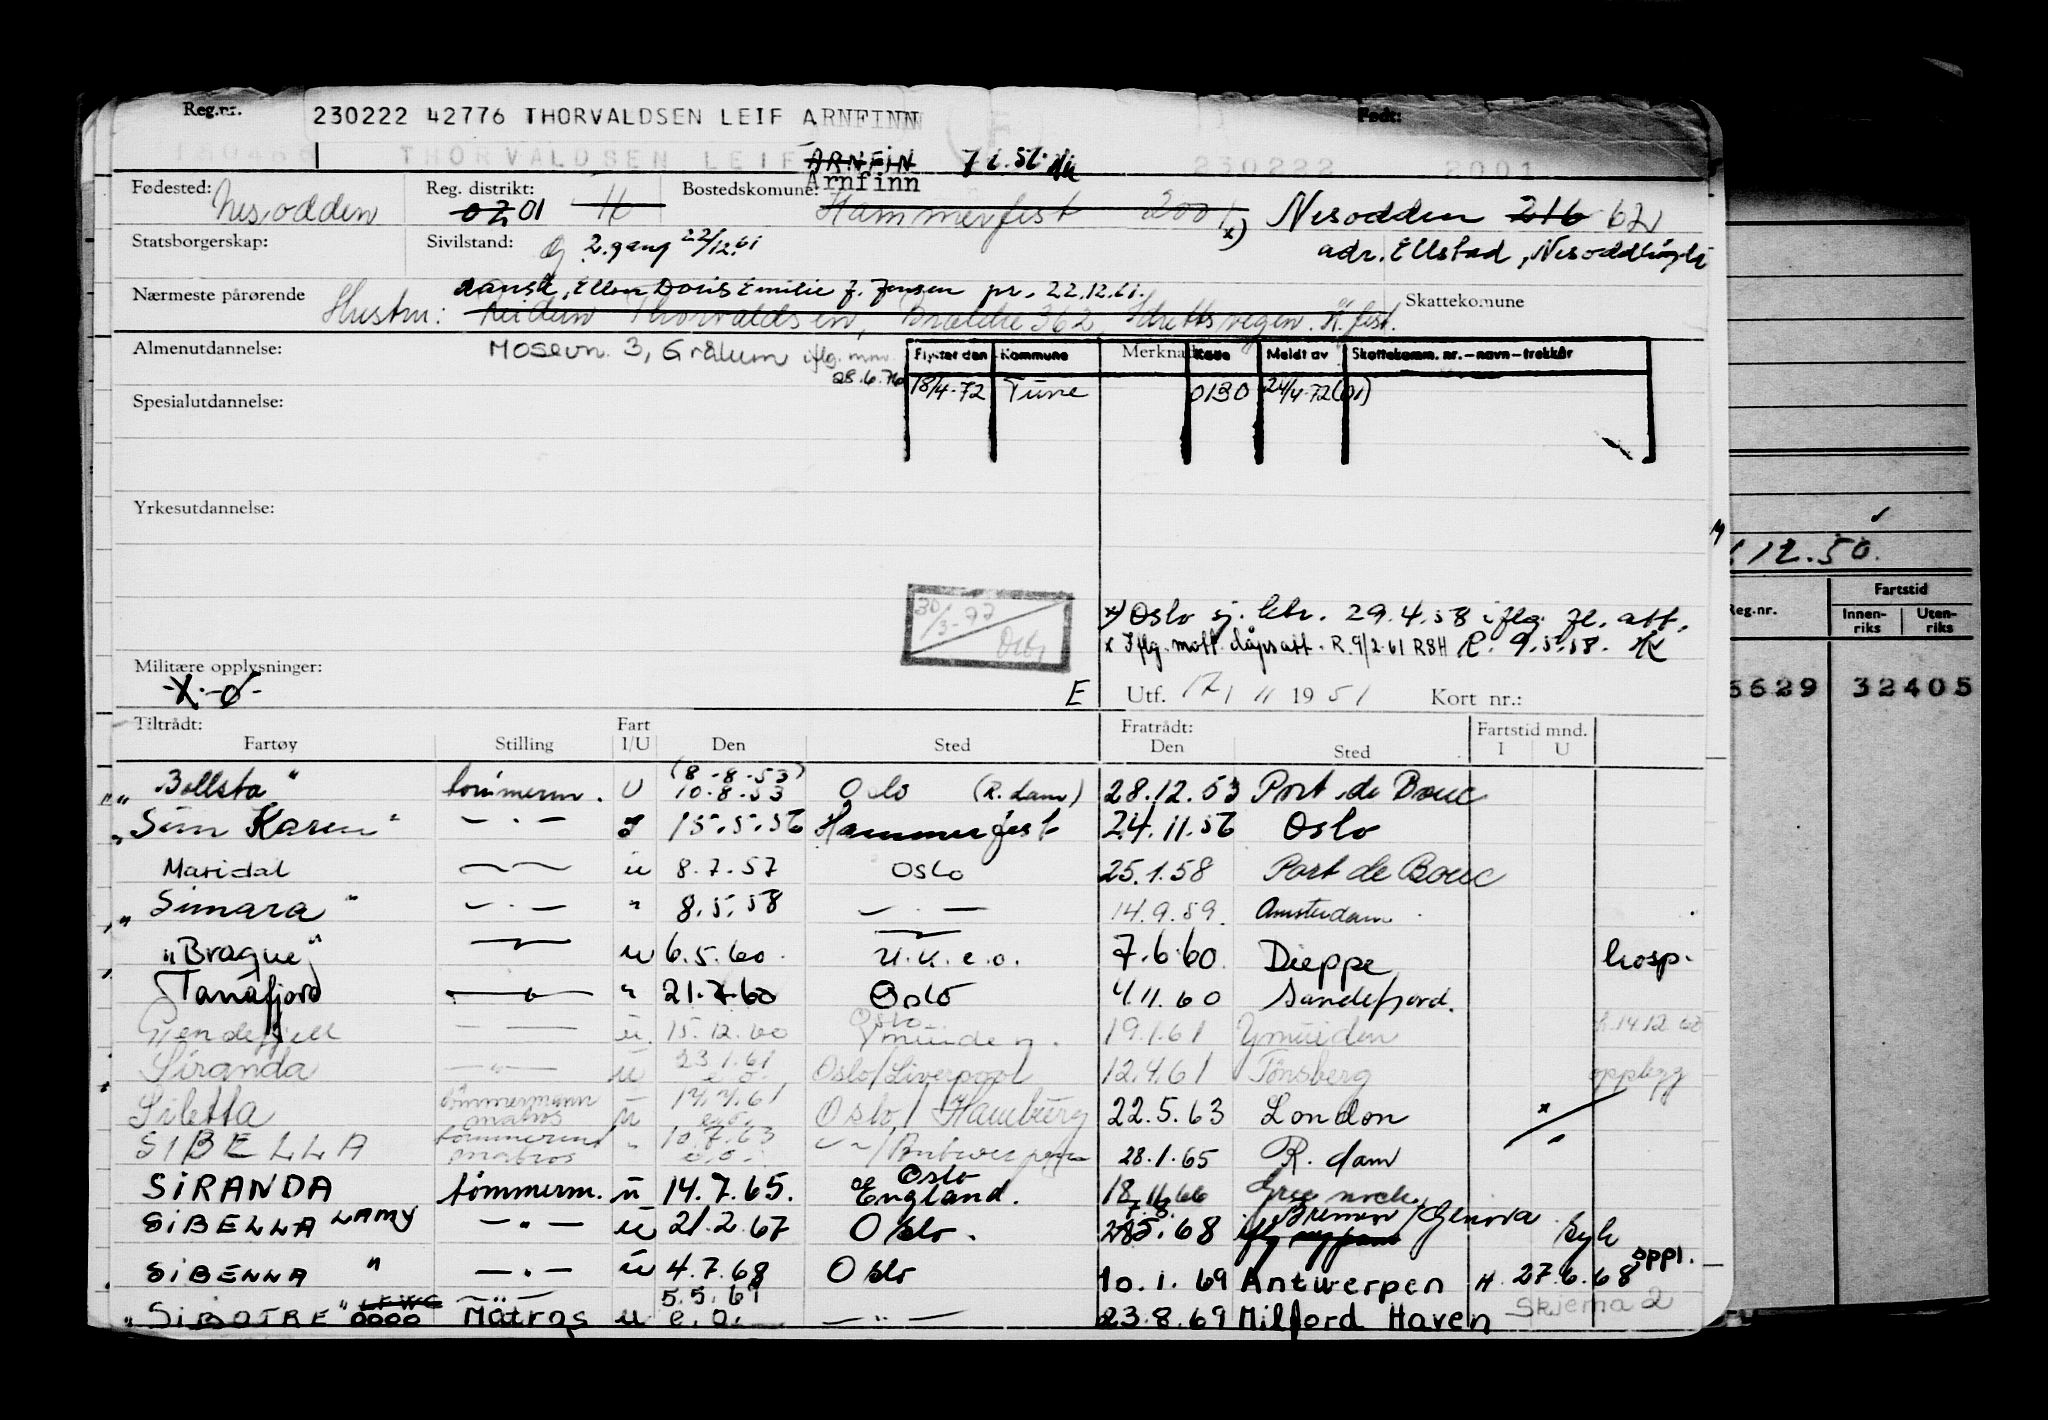 Reg.nr. 230222 42776 THORVALDSEN LEIF ARNFINN Født:
THORVALDSEN LEIF ARNFIN 230222 2001
Arnfinn
Fødested: Nesodden Reg. distrikt: 02 01 H Bostedskomune: Hammerfest 2001 x) Nesodden 216 62
Statsborgerskap: Sivilstand: G 2. gang 22/12.61 adr. Ellstad,
dansk, Ellen Doris Emilie J. Jensen pr. 22.12.61.
Nærmeste pårørende Hustru: Thorvaldsen, 362, Skattekomune
Almenutdannelse: Mosevn. 3, Grålum iflg. mm. 28.6.76 Flyttet den Kommune Merknad Kode Meldt av Skattekomm. nr.-navn-trekkår
18/4-72 Tune 0130 24/4-72 (01)
Spesialutdannelse:
Yrkesutdannelse:
112.50.
Reg.nr. Fartstid
Innen-riks Uten-riks
30/3-77
x) Oslo sj. 29.4.58 iflg. fl. att.
x Iflg. mott. dåpsatt. R. 9/2-61 RSH R. 9.5.58.
Militære opplysninger:
-X.-Ø-
E Utf. 17/11 1951 Kort nr.:
5629 32405
Tiltrådt: Fart Fratrådt: Fartstid mnd.
Fartøy Stilling I/U Den Sted Den Sted I U
"Bollsta" tømmerm. U (8-8-53) 10.8.53 Oslo (R.dam) 28.12.53 Port de Bouc
"Sun Karen" -.- I 15.5.56 Hammerfest 24.11.56 Oslo
Maridal u 8.7.57 Oslo 25.1.58 Port de Bouc
"Simara" -.- " 8.5.58 -.- 14.9.59. Amsterdam
"Brague" u 6.5.60. u.k. e.o. 7.6.60. Dieppe hosp.
Tanafjord " 21.7.60 Oslo 4.11.60 Sandefjord.
Gjendefjell u. 15.12.60 Oslo Ymuiden. 19.1.61 Ymuiden 14.12.60
Siranda u 23.1.61 e.o. Oslo/Liverpool 12.4.61 Tønsberg opplegg
Siletta tømmermann matros u 14.4.61 e.o. Oslo/Hamburg 22.5.63 London x
SIBELLA tømmerm matros " 10.7.63 e.o. -"-/Antwerpen 28.1.65 R.dam
SIRANDA tømmerm. u 14.7.65. Oslo e England. 18.11.66 Greenock
SIBELLA LAMY -"- u 21.2.67 Oslo. 68 Bremen/Genova syk
SIBENNA " -"- u 4.7.68 Oslo 10.1.69 Antwerpen H 27.6.68 oppl.
"SIBOTRE" Matros u 5.5.69 e.o. -"- 23.8.69 Milford Haven Skjema 2